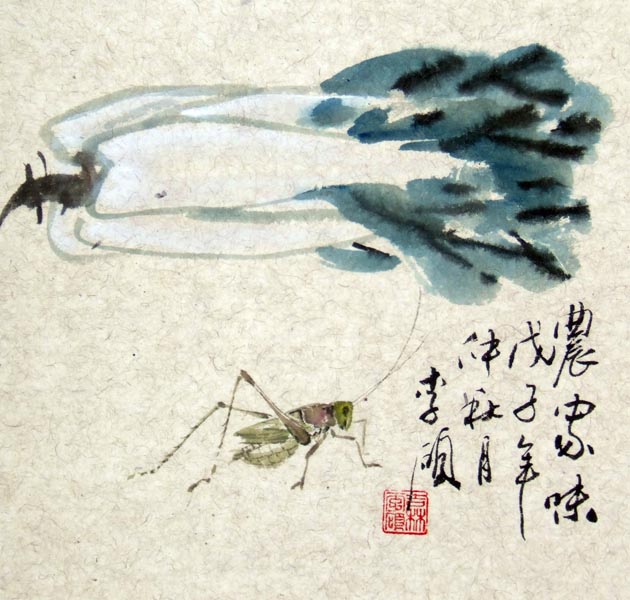 農家味
戊子年
仲秋月
李頑